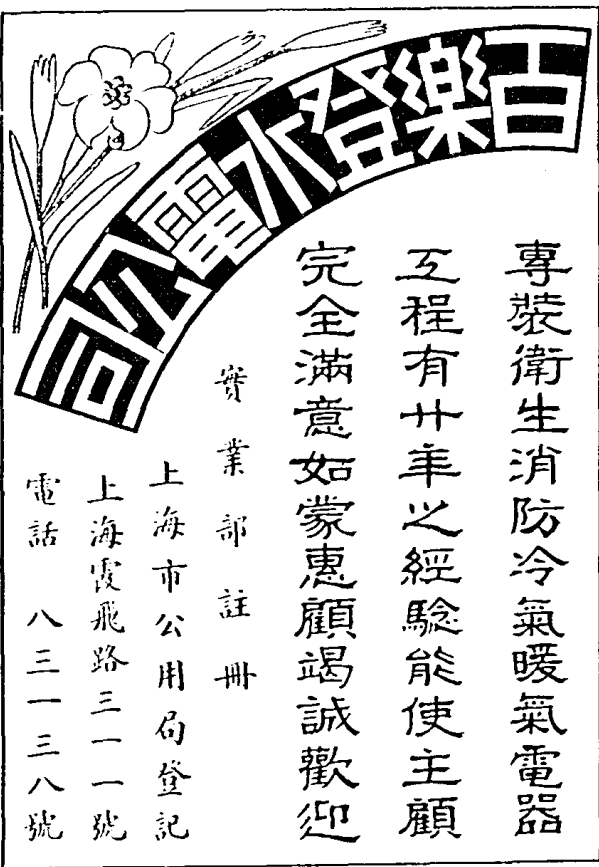 百樂登水電公司
專裝衛生消防冷氣暖氣電器
工程有廿年之經驗能使主顧
完全滿意如蒙惠顧竭誠歡迎
實業部註冊
上海市公用局登記
上海霞飛路三一一號
電話 八三一三八號